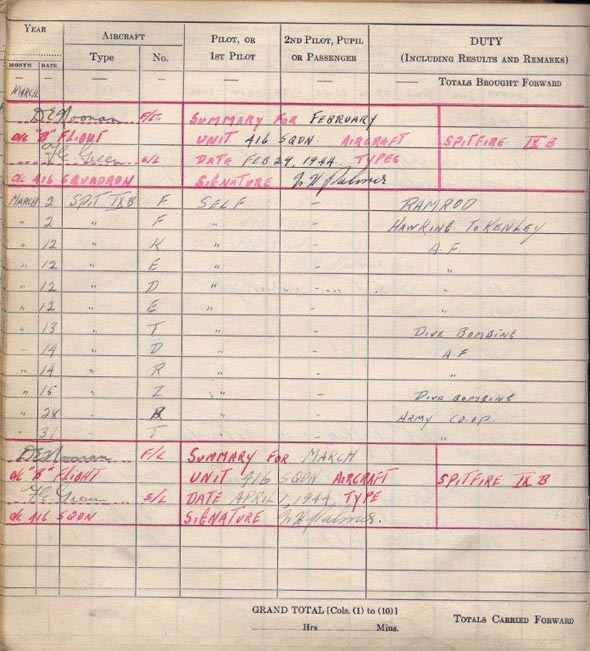 YEAR AIRCRAFT PILOT, OR 2ND PILOT, PUPIL DUTY
MONTH DATE Type No. 1ST PILOT OR PASSENGER (INCLUDING RESULTS AND REMARKS)
— — — — — — — TOTALS BROUGHT FORWARD
MARCH
D E Noonan F/LT. SUMMARY FOR FEBRUARY
O/C "B" FLIGHT UNIT 416 SQDN. AIRCRAFT SPITFIRE IX B
F E Green S/L DATE FEB 29, 1944. TYPES
O/C 416 SQUADRON SIGNATURE Palmer
MARCH 2 SPIT IXB F SELF — RAMROD
" 2 " F " — HAWKING TO KENLEY
" 12 " K " — A.F.
" 12 " E " — "
" 12 " D " — "
" 12 " E " —
" 13 " T " — DIVE BOMBING
" 14 " D " — A.F
" 14 " R " — "
" 15 " Z " — DIVE BOMBING
" 28 " " — ARMY CO-OP.
" 31 " T " — "
D E Noonan F/L SUMMARY FOR MARCH
O/C "B" FLIGHT UNIT 416 SQDN AIRCRAFT SPITFIRE IX B
F E Green S/L DATE APRIL 1, 1944 TYPE
O/C 416 SQDN SIGNATURE Palmer.
GRAND TOTAL [Cols. (1) to (10)]
TOTALS CARRIED FORWARD
Hrs Mins.